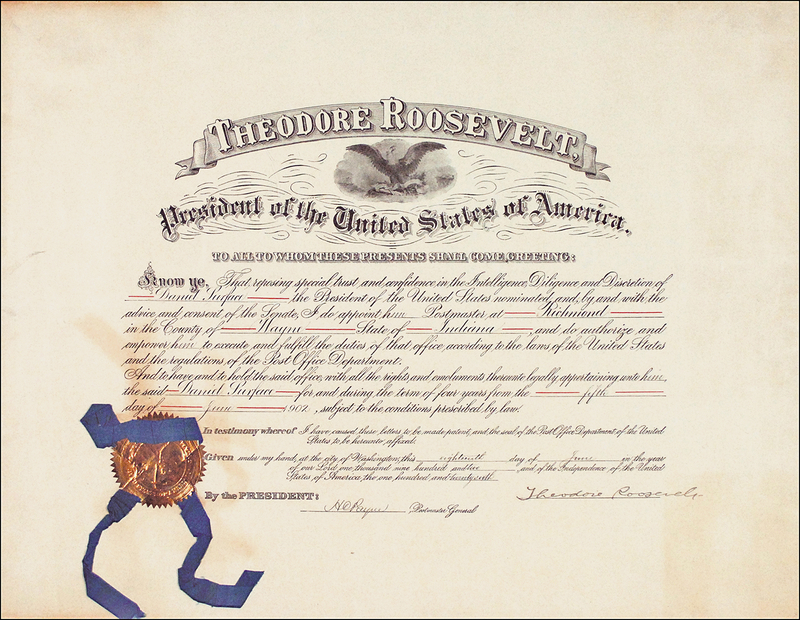 THEODORE ROOSEVELT,
President of the United States of America.
TO ALL TO WHOM THESE PRESENTS SHALL COME, GREETING:
Know ye, That, reposing special trust and confidence in the Intelligence, Diligence and Discretion of
Daniel Surface, the President of the United States nominated, and, by and with the
advice and consent of the Senate, I do appoint him Postmaster at Richmond
in the County of Wayne State of Indiana, and do authorize and
empower him to execute and fulfill the duties of that office, according to the laws of the United States
and the regulations of the Post Office Department.
And to have and to hold the said office, with all the rights and emoluments thereunto legally appertaining unto him,
the said Daniel Surface for and during the term of four years from the fifth
day of June 1902, subject to the conditions prescribed by law.
In testimony whereof I have caused these letters to be made patent, and the seal of the Post Office Department of the United
States to be hereunto affixed.
Given under my hand, at the city of Washington, this eighteenth day of June in the year
of our Lord one thousand nine hundred and two, and of the Independence of the United
States of America, the one hundred and twenty sixth
By the PRESIDENT:
Theodore Roosevelt
H C Payne, Postmaster General